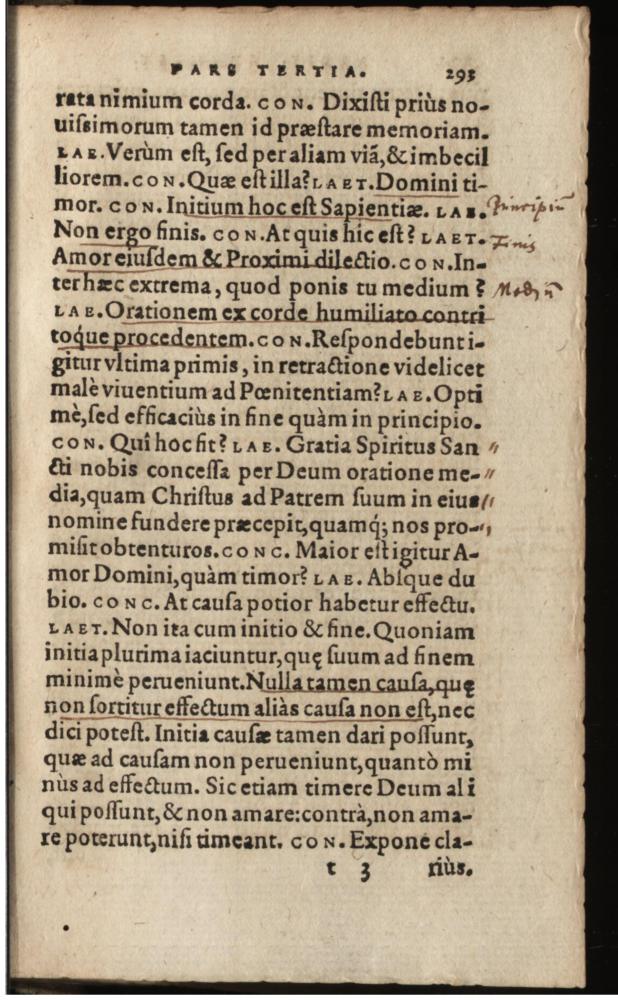 PARS TERTIA. 293
rata nimium corda. CON. Dixiſti priùs no-
uiſsimorum tamen id præſtare memoriam.
LAE. Verùm eſt, ſed per aliam viã, & imbecil
liorem. CON. Quæ eſt illa? LAET. Domini ti-
mor. CON. Initium hoc eſt Sapientiæ. LAE. Principiũ
Non ergo finis. CON. At quis hic eſt? LAET. Finis
Amor eiuſdem & Proximi dilectio. CON. In-
ter hæc extrema, quod ponis tu medium? Mediũ
LAE. Orationem ex corde humiliato contri
toque procedentem. CON. Reſpondebunt i-
gitur vltima primis, in retractione videlicet
malè viuentium ad Pœnitentiam? LAE. Opti
mè, ſed efficaciùs in fine quàm in principio.
CON. Quî hoc fit? LAE. Gratia Spiritus San
cti nobis conceſſa per Deum oratione me-
dia, quam Chriſtus ad Patrem ſuum in eius
nomine fundere præcepit, quamq́; nos pro-
miſit obtenturos. CONC. Maior eſt igitur A-
mor Domini, quàm timor? LAE. Abſque du
bio. CONC. At cauſa potior habetur effectu.
LAET. Non ita cum initio & fine. Quoniam
initia plurima iaciuntur, quę ſuum ad finem
minimè perueniunt. Nulla tamen cauſa, quę
non ſortitur effectum aliàs cauſa non eſt, nec
dici poteſt. Initia cauſæ tamen dari poſſunt,
quæ ad cauſam non perueniunt, quantò mi
nùs ad effectum. Sic etiam timere Deum ali
qui poſſunt, & non amare: contrà, non ama-
re poterunt, niſi timeant. CON. Expone cla-
t 3 riùs.